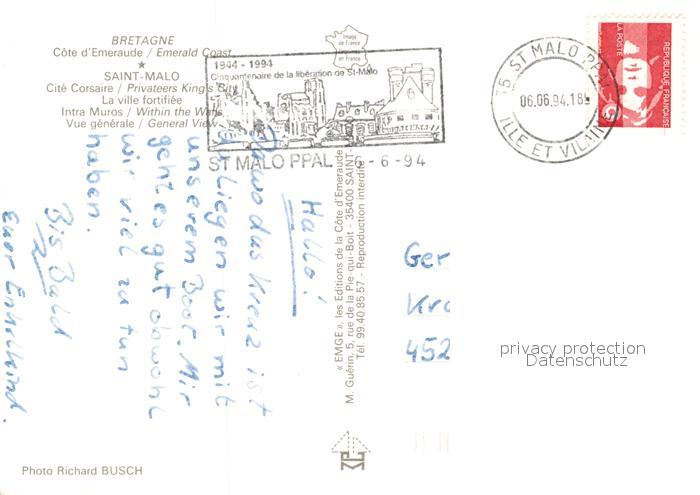 BRETAGNE
Côte d'Emeraude / Emerald Coast
★
SAINT-MALO
Cité Corsaire / Privateers King's City
La ville fortifiée
Intra Muros / Within the Walls
Vue générale / General View
1944 - 1994
Cinquantenaire de la libération de St-Malo
ST MALO PPAL 6 - 6 - 94
Image
de France
35 ST MALO PPAL
06.06.94.18
ILLE ET VILAINE
RÉPUBLIQUE FRANÇAISE
LA POSTE
Hallo!
Da wo das Kreuz ist
liegen wir mit
unserem Boot. Mir
geht es gut obwohl
wir viel zu tun
haben.
Bis Bald
Euer
« EMGE », les Editions de la Côte d'Emeraude
M. Guérin, 5, rue de la Pie-qui-Boit - 35400 SAINT-
Tél. 99.40.85.57 - Reproduction interdite
Ger
Kro
452
privacy protection
Datenschutz
Photo Richard BUSCH